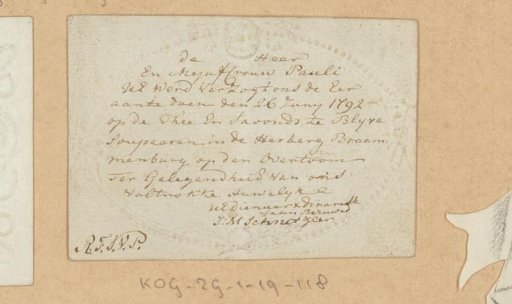 de Heer
En Mejuffrouw Pauli
UE Werd Verzogt ons de Eer
aante doen den 26 Juny 1792
op de Thee En Savonds te Blyve
Soupeeren in de Herberg Braam
menburg op den Overtoom
Ter Gelegendheid van ons
Voltrokke Huwelyk
UE Dienaar & Dinaresse
J: M Schnitzler
R.F.S.V.P.
KOG-ZG-1-19-118